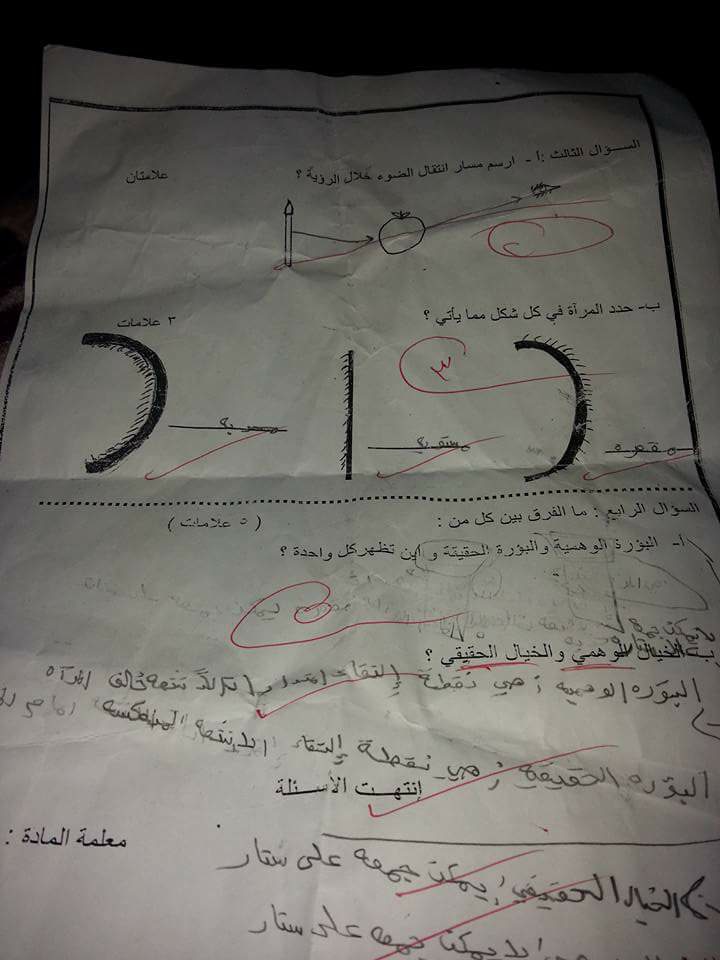 السؤال الثالث :أ - ارسم مسار انتقال الضوء خلال الرؤية ؟ علامتان
ب- حدد المرآة في كل شكل مما يأتي ؟ ٣ علامات
٣
مقعره مستويه محدبه
السؤال الرابع : ما الفرق بين كل من : ( ٥ علامات )
أ- البؤرة الوهمية والبؤرة الحقيقة و اين تظهر كل واحدة ؟
ب- الخيال الوهمي والخيال الحقيقي ؟
البؤره الوهميه : هي نقطة إلتقاء امتدادات الأشعه خلف المرآه
البؤره الحقيقيه : هي نقطة إلتقاء الاشعه المنعكسه
إنتهت الأسئلة
معلمة المادة :
الخيال الحقيقي : يمكن جمعه على ستار
لا يمكن جمعه على ستار